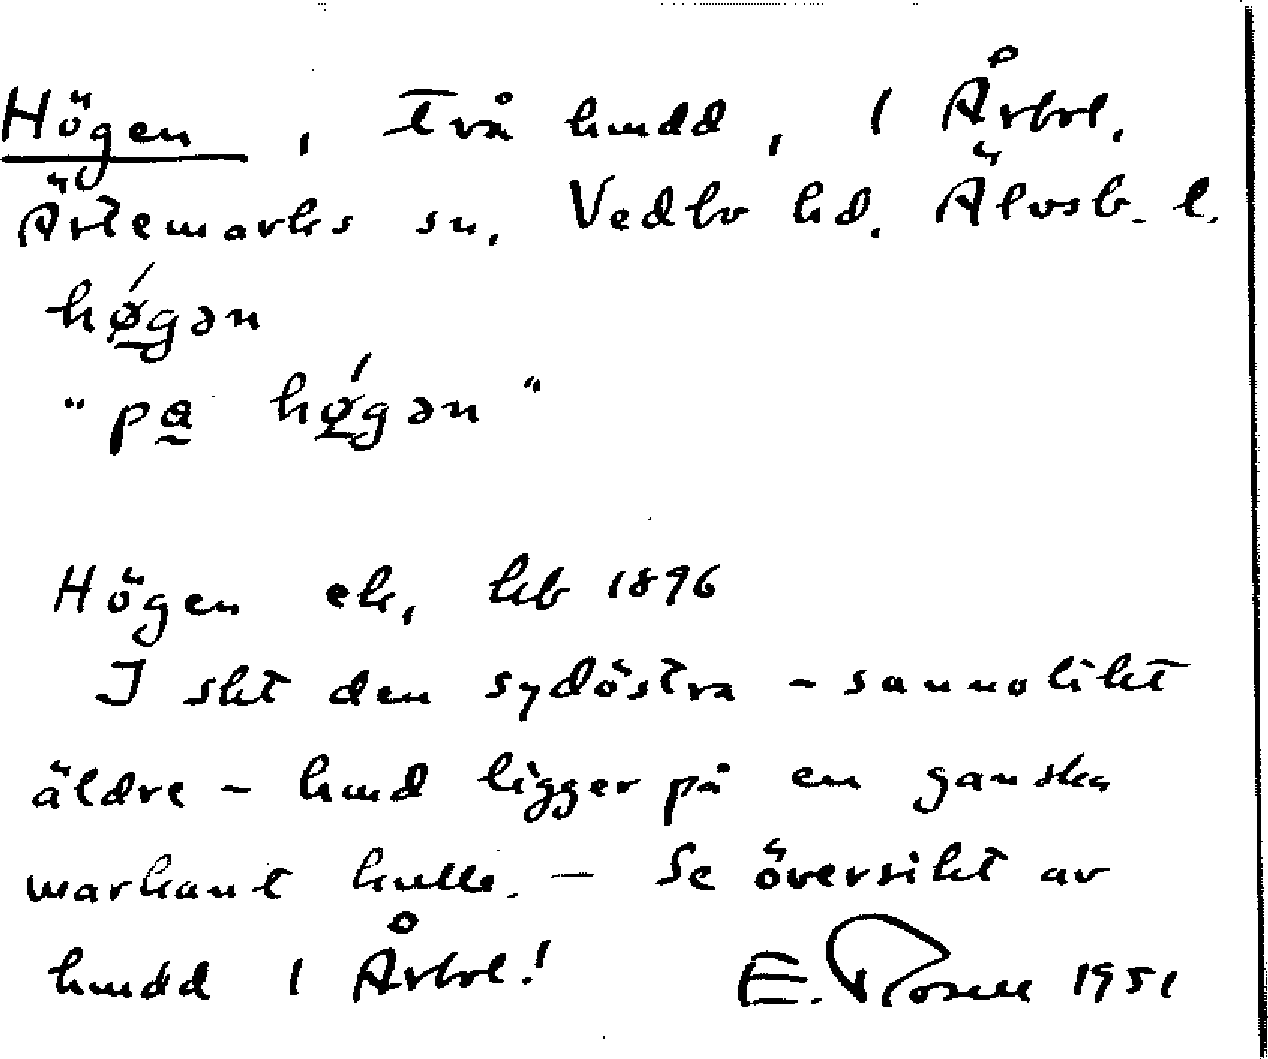 Högen , Två hmdd , 1 Årbol.
Ärtemarks sn. Vedbo hd. Älvsb. l.
hǿgən
"pa hǿgən"
Högen ek, hkb 1896
I skt den sydöstra – sannolikt
äldre – hmd ligger på en ganska
markant kulle. — Se översikt av
hmdd 1 Årbol! E. Rosell 1951